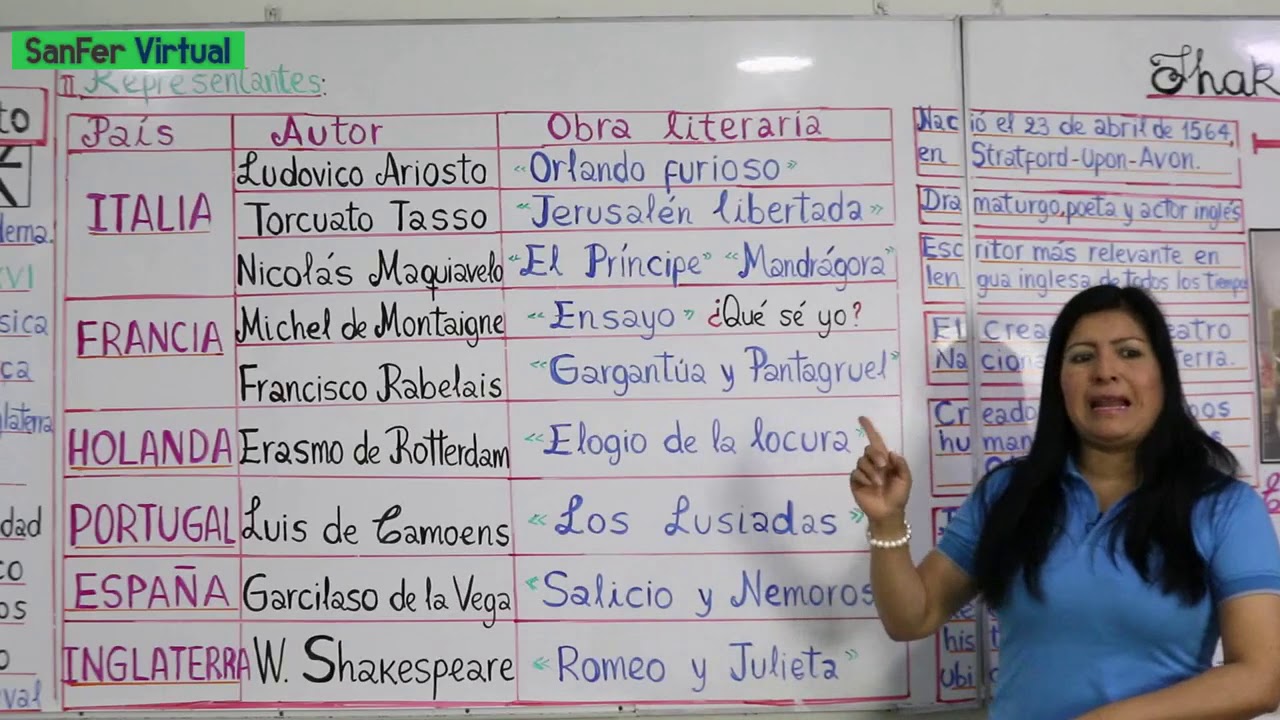 SanFer Virtual
II Representantes:
País Autor Obra literaria
ITALIA
Ludovico Ariosto «Orlando furioso»
Torcuato Tasso «Jerusalén libertada»
Nicolás Maquiavelo «El Príncipe» «Mandrágora
FRANCIA
Michel de Montaigne «Ensayo» ¿Qué sé yo?
Francisco Rabelais «Gargantúa y Pantagruel»
HOLANDA Erasmo de Rotterdam «Elogio de la locura»
PORTUGAL Luis de Camoens «Los Lusiadas»
ESPAÑA Garcilaso de la Vega «Salicio y Nemoros
INGLATERRA W. Shakespeare «Romeo y Julieta»
Shak
Nació el 23 de abril de 1564,
en Stratford-Upon-Avon.
Dramaturgo, poeta y actor inglés
Escritor más relevante en
lengua inglesa de todos los tiempo
El Crea eatro
Naciona terra.
Creado pos
human
his
ubi
to
lema.
XVI
sica
ca
glaterra
dad
co
os
o
val